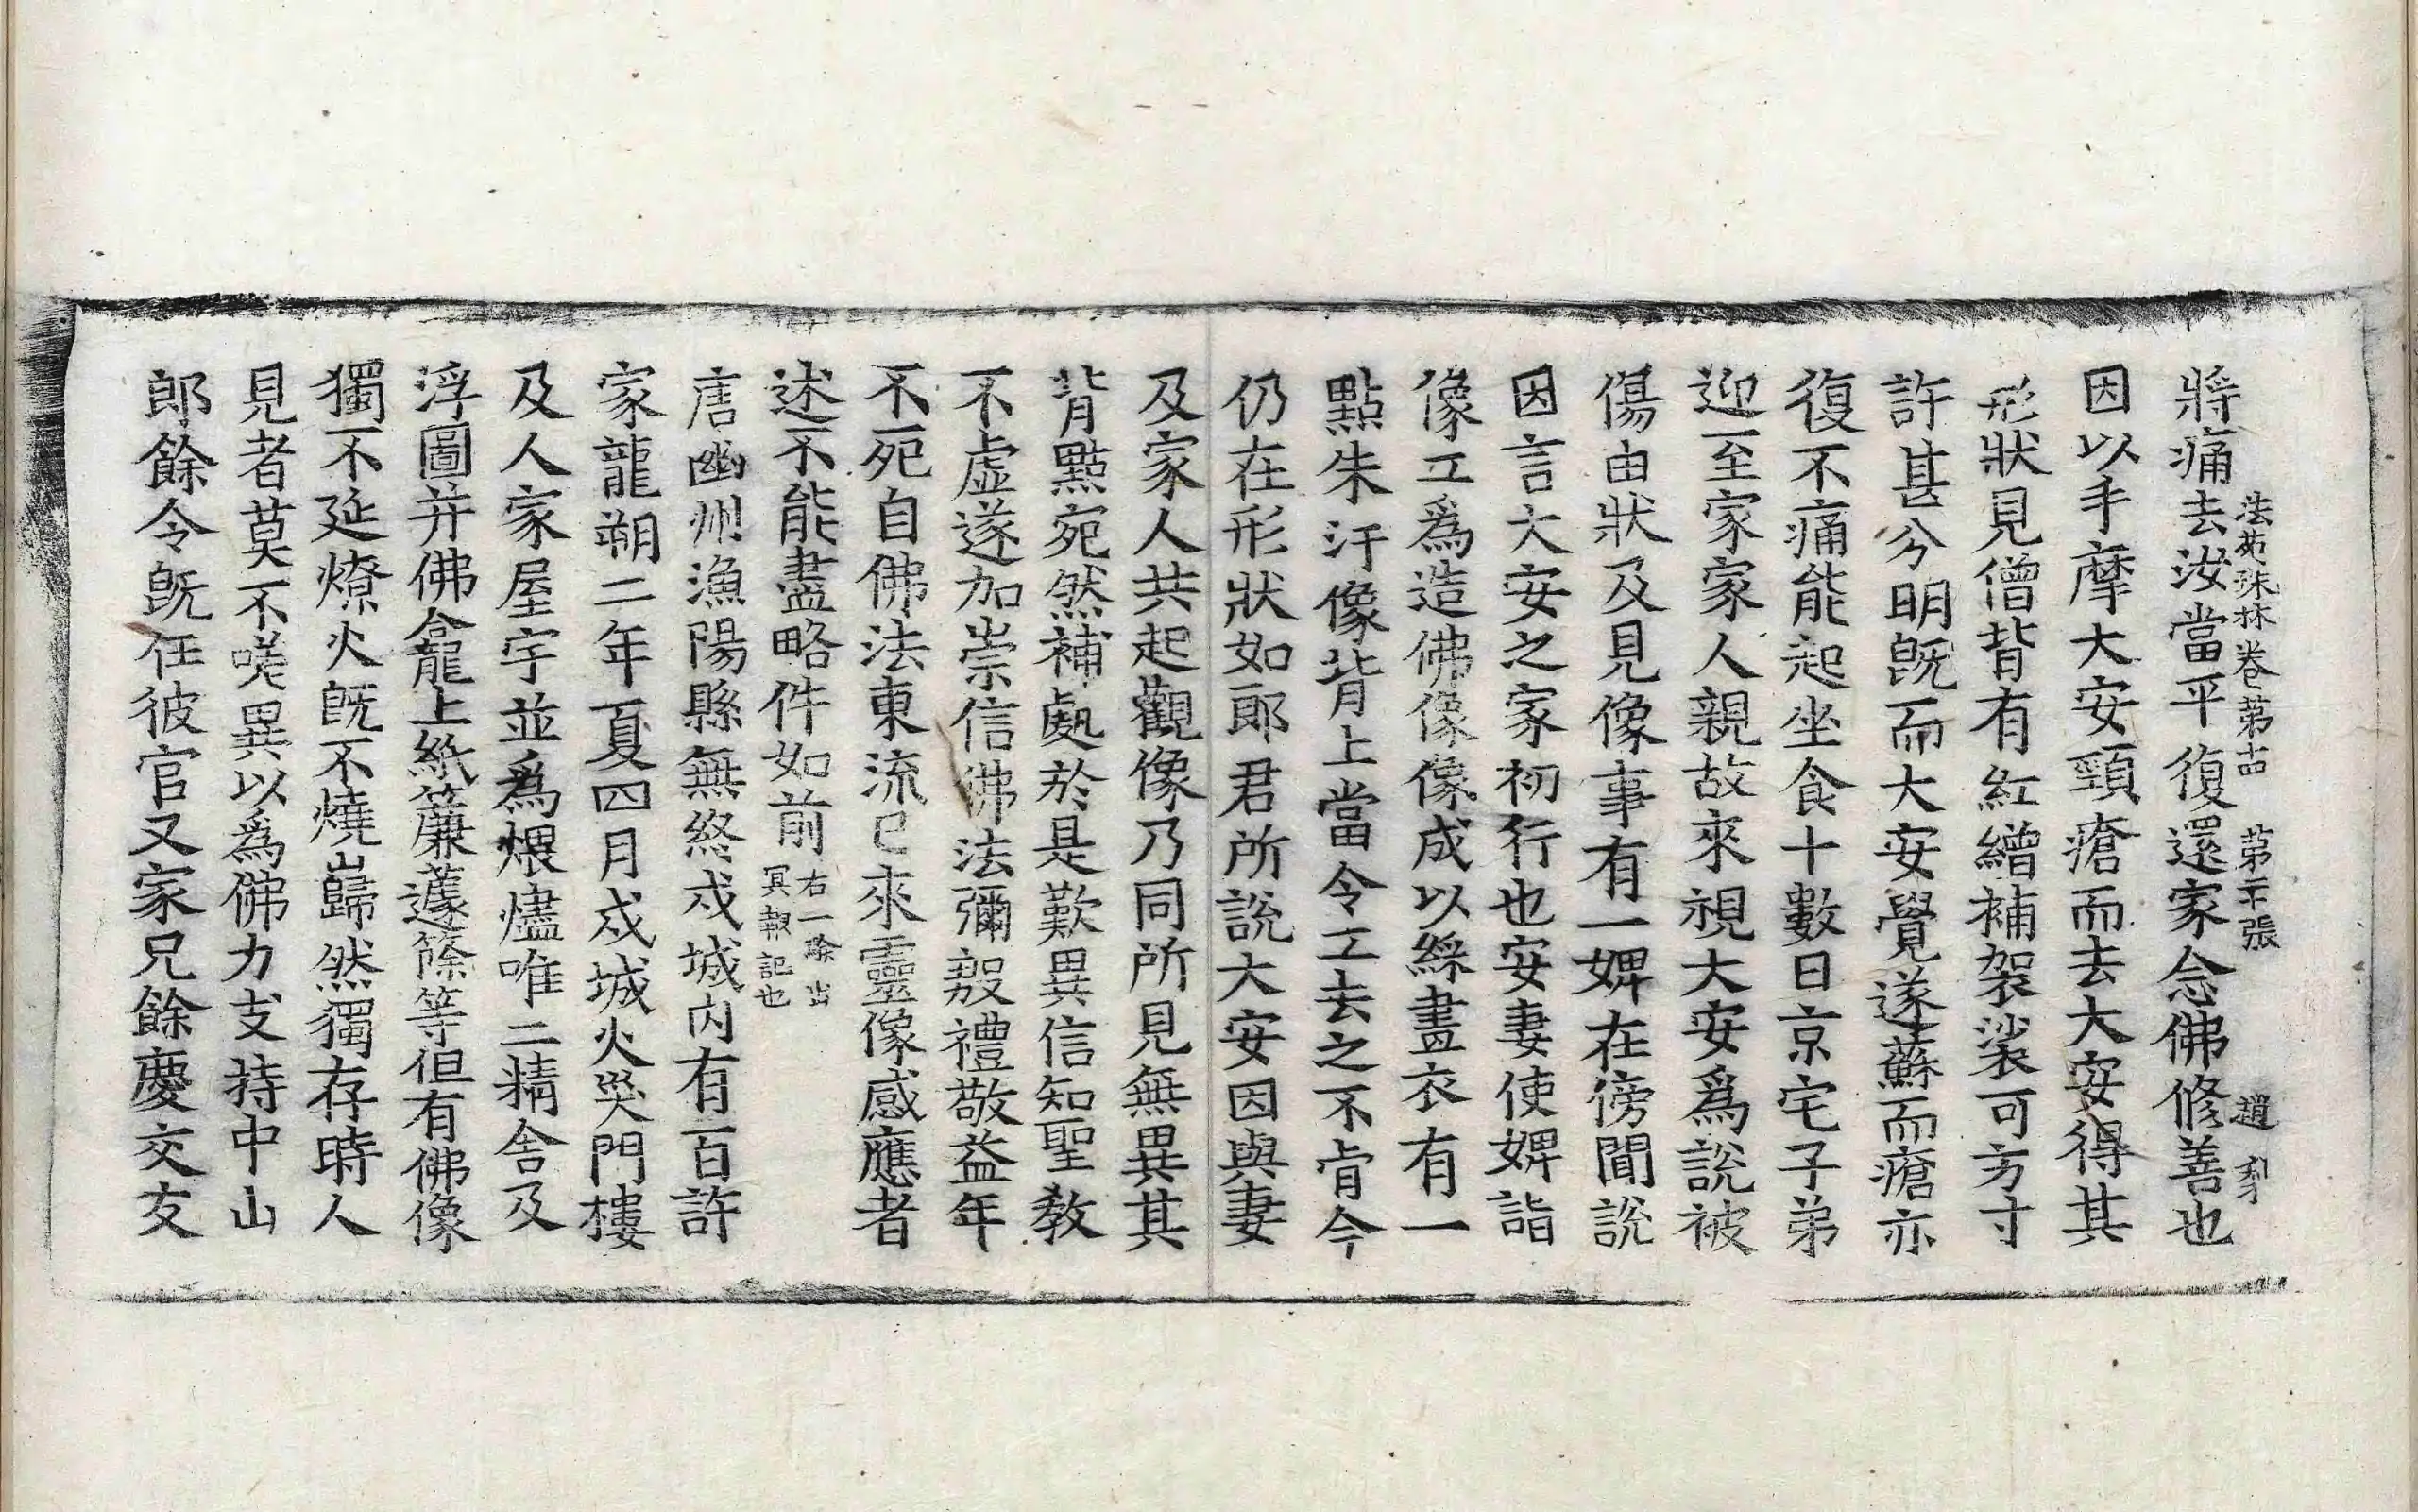 法苑珠林卷第十四 第二十張 趙 刹
將痛去汝當平復還家念佛修善也
因以手摩大安頸瘡而去大安得其
形狀見僧背有紅繒補袈裟可方寸
許甚分明旣而大安覺遂蘇而瘡亦
復不痛能起坐食十數日京宅子弟
迎至家家人親故來視大安爲說被
傷由狀及見像事有一婢在傍聞說
因言大安之家初行也安妻使婢詣
像工爲造佛像像成以綵畫衣有一
點朱汗像背上當令工去之不肯今
仍在形狀如郎君所說大安因與妻
及家人共起觀像乃同所見無異其
背點宛然補處於是歎異信知聖教
不虛遂加崇信佛法彌殷禮敬益年
不死自佛法東流已來靈像感應者
述不能盡略件如前右一驗出冥報記也
唐幽州漁陽縣無終戍城內有百許
家龍朔二年夏四月戍城火災門樓
及人家屋宇並爲煨燼唯二精舍及
浮圖并佛龕上紙簾蘧篨等但有佛像
獨不延燎火旣不燒巋然獨存時人
見者莫不嗟異以爲佛力支持中山
郎餘令旣任彼官又家兄餘慶交友